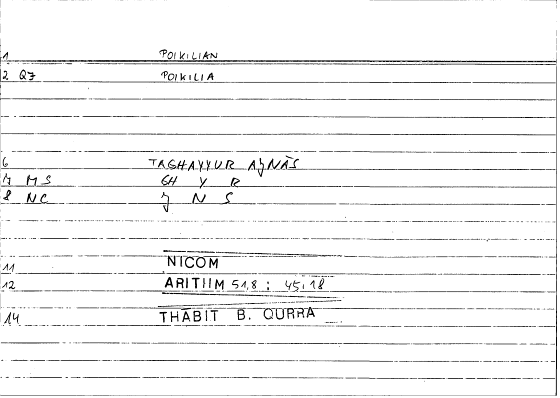 1 POIKILIAN
2 Q7 POIKILIA
6 TAGHAYYUR AǧNĀS
7 MS GH Y R
8 NC ǧ N S
11 NICOM
12 ARITIIM 51,8 : 45,18
14 THABIT B. QURRA